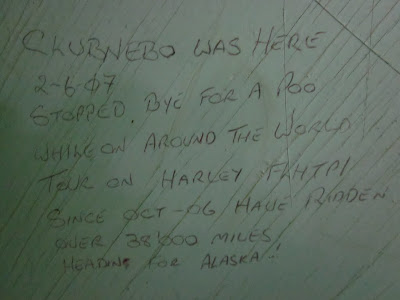 CLUBNEBO WAS HERE
2-6-07
STOPPED. BYE FOR A POO
WHILE ON AROUND THE WORLD
TOUR ON HARLEY FLHTPI
SINCE OCT-06 HAVE RIDDEN
OVER 38'000 MILES
HEADING FOR ALASKA!!